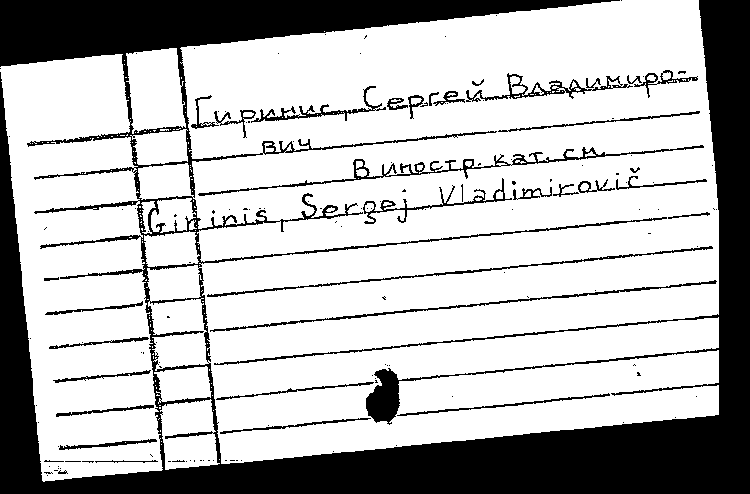 Гиринис, Сергей Владимиро-
вич
В иностр. кат. см.
Girinis, Sergej Vladimirovič